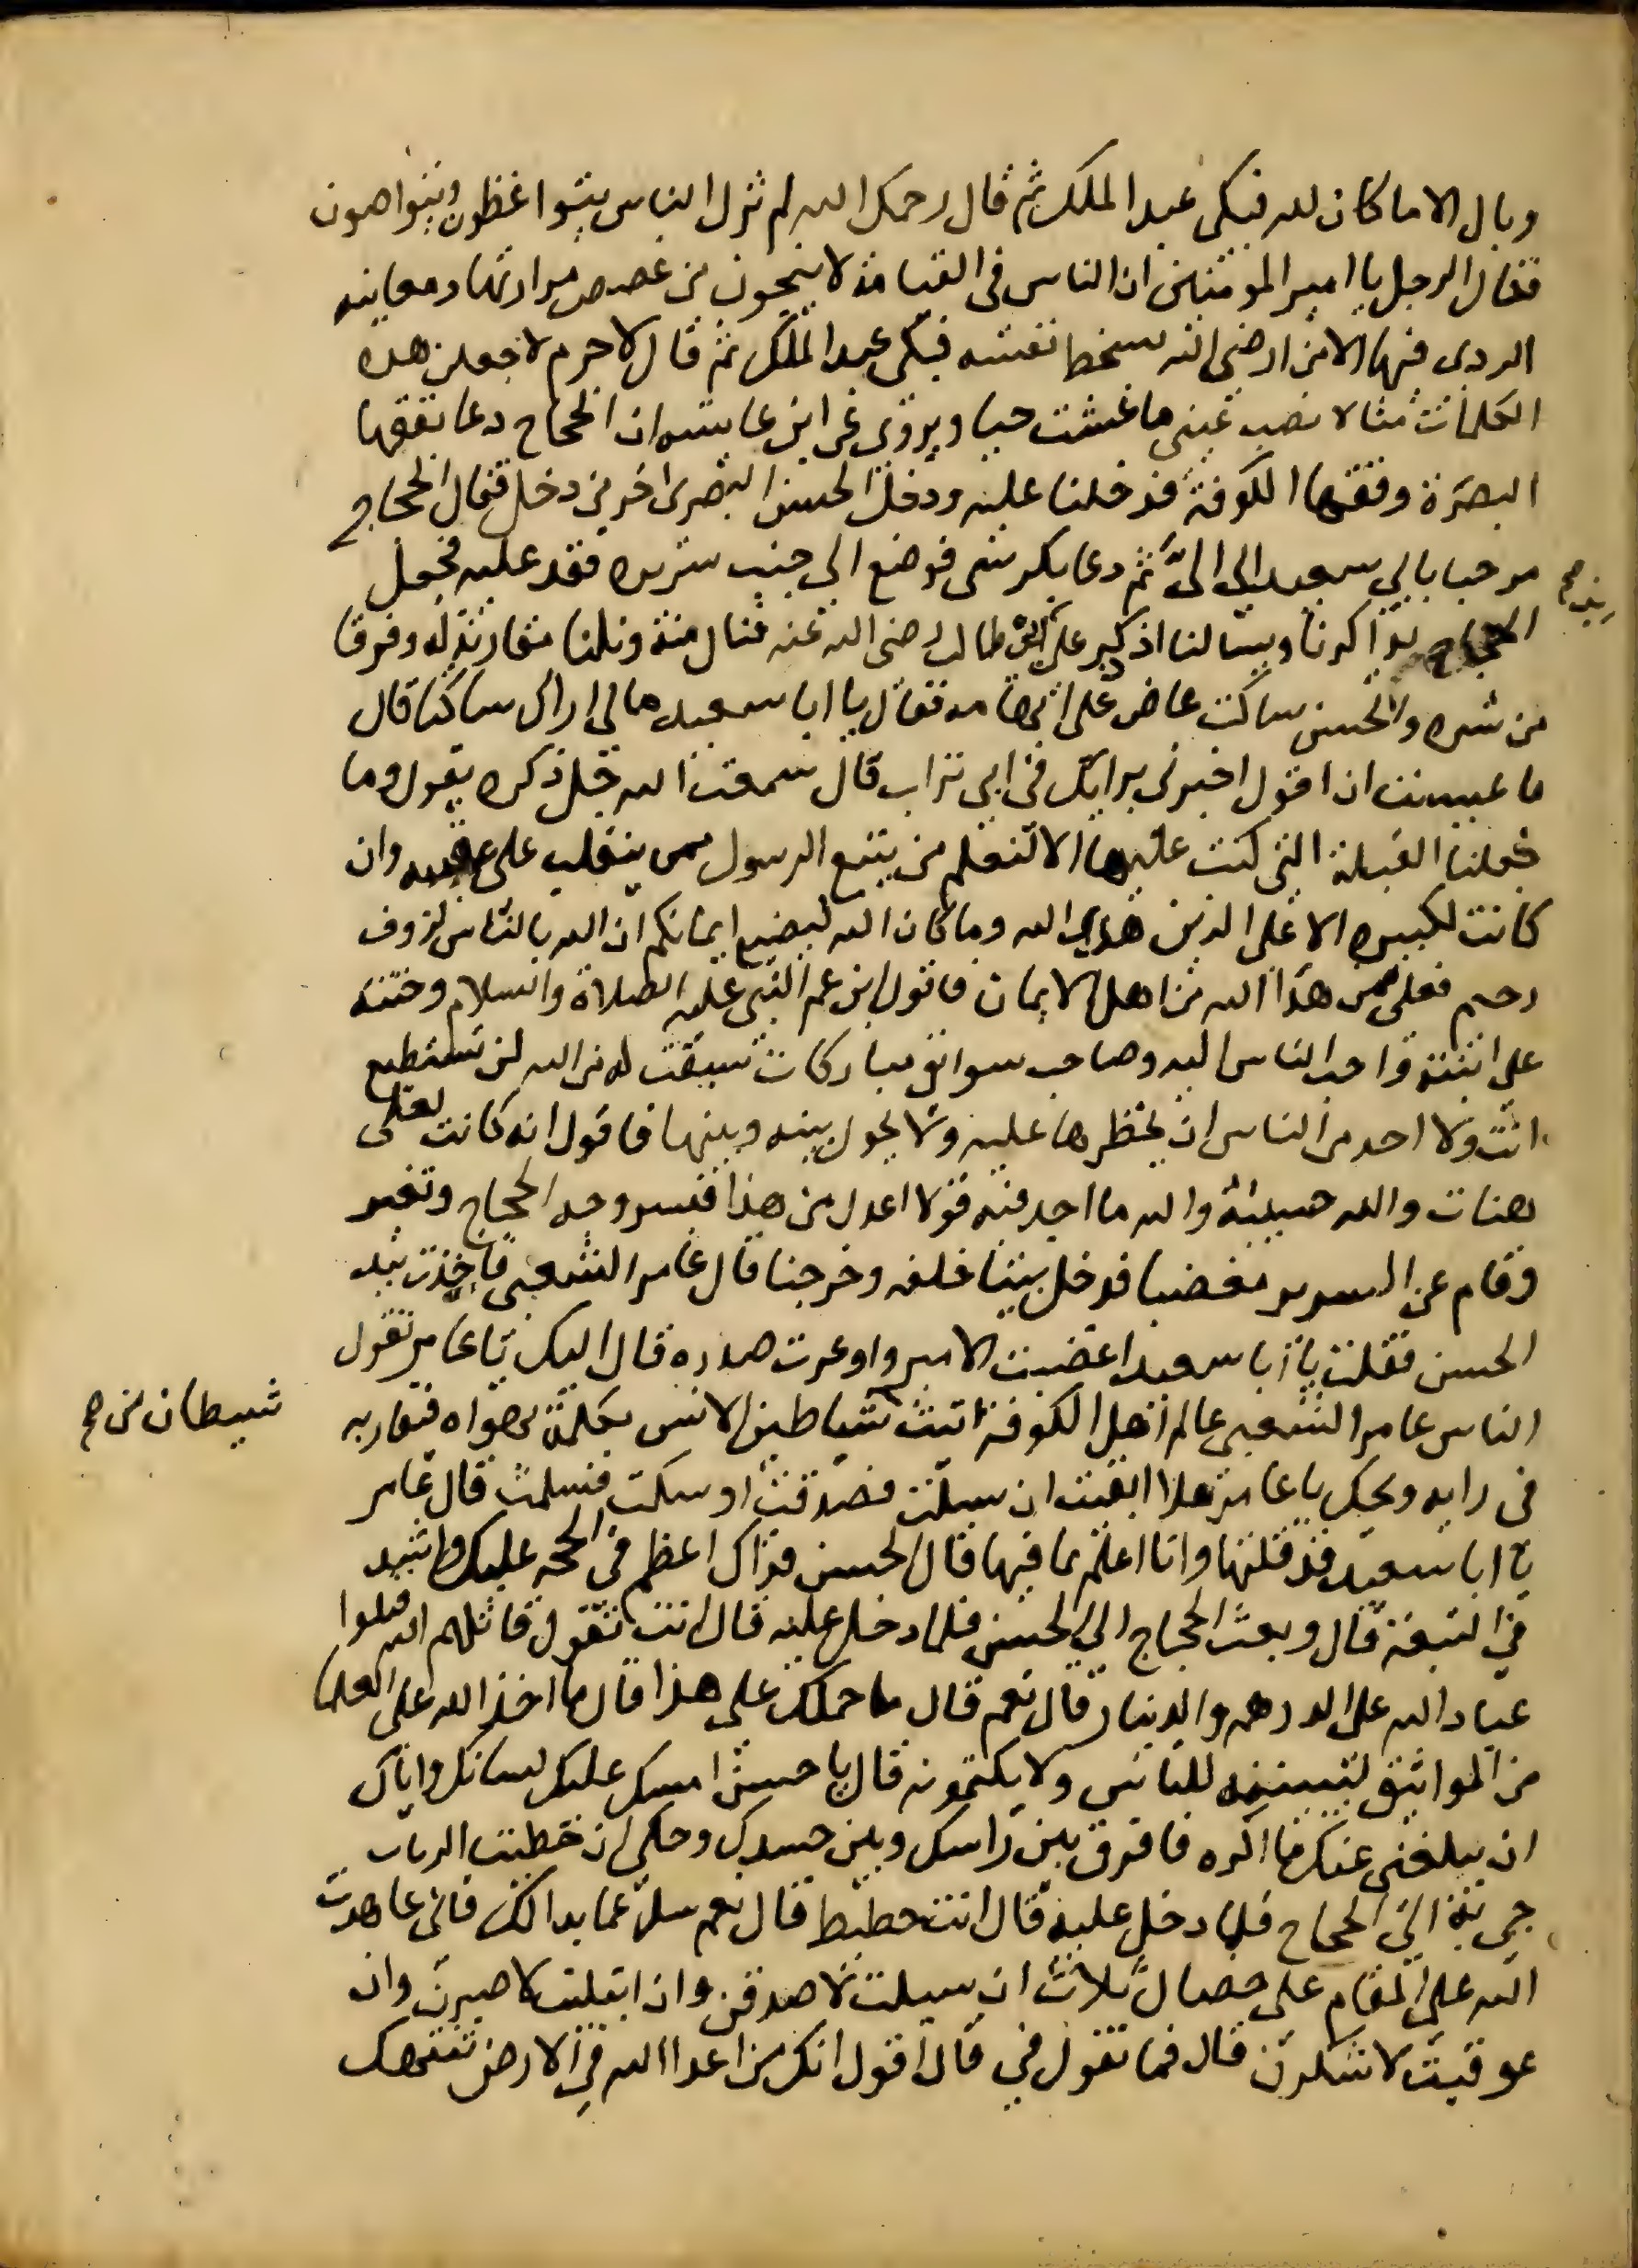 وبال الا ما كان لله فبكى عبد الملك ثم قال رحمك الله لم تزل الناس يتواعظون ويتواصون
فقال الرجل يا امير المومنين ان الناس في القيامة لا ينجون من غصص مرارتها ومعاينه
الردى فيها الا من ارضى الله بسخط نفسه فبكى عبد الملك ثم قال لا جرم لاجعلن هذه
الكلمات مثالا نصب عيني ما عشت حيا ويروى عن ابن عايشه ان الحجاج دعا بفقها
البصرة وفقها الكوفة فدخلنا عليه ودخل الحسن البصرى اخر من دخل فقال الحجاج
مرحبا بابي سعيد الي الىّ ثم دعا بكرسى فوضع الى جنب سريره فقعد عليه فجعل
الحجاج يذاكرنا ويسالنا اذ ذكر على بن ابى طالب رضى الله عنه فنال منه ونلنا مقاربة له وفرقا
من شره والحسن ساكت عاض على ابهامه فقال يا ابا سعيد مالى اراك ساكتا قال
ما عسيت ان اقول اخبرنى برايك في ابى تراب قال سمعت الله جل ذكره يقول وما
جعلنا القبلة التى كنت عليها الا لنعلم من يتبع الرسول ممن ينقلب على عقبيه وان
كانت لكبيره الا على الذين هدى الله وما كان الله ليضيع ايمانكم ان الله بالناس لروف
رحيم فعلى ممن هدا الله من اهل الايمان فاقول ابن عم النبى عليه الصلاة والسلام وختنه
على ابنته واحب الناس اليه وصاحب سوابق مباركات سبقت له من الله لن تستطيع
انت ولا احد من الناس ان يحظرها عليه ولا يحول بينه وبينها فاقول انه كانت لعلى
هنات والله حسيبه والله ما اجد فيه قولا اعدل من هذا فبسر وجه الحجاج وتغير
وقام عن السرير مغضبا فدخل بيتا خلفه وخرجنا قال عامر الشعبى فاخذت بيد
الحسن فقلت يا ابا سعيد اغضبت الامير واوغرت صدره قال اليك يا عامر تقول
الناس عامر الشعبى عالم اهل الكوفة اتيت شياطين الانس بكلمة بهواه فتقاربه
شيطان من صح
فى رايه ويحك يا عامر هلا اتقيت ان سيلت فصدقت او سكت فسلمت قال عامر
يا ابا سعيد قد قلتها وانا اعلم بما فيها قال الحسن فذاك اعظم في الحجه عليك واشد
في التبعة قال وبعث الحجاج الى الحسن فلما دخل عليه قال انت تقول قاتلهم الله قتلوا
عباد الله على الدرهم والدينار قال نعم قال ما حملك على هذا قال ما اخذ الله على العلما
من المواثيق لتبيننه للناس ولا يكتمونه قال يا حسن امسك عليك لسانك واياك
ان يبلغنى عنك ما اكره فافرق بين راسك وبين جسدك وحكى ان حطيت الزيات
جى به الى الحجاج فلما دخل عليه قال انت حطيط قال نعم سل عما بدا لك فانى عاهدت
الله على المقام على خصال ثلاث ان سيلت لاصدقن وان ابتليت لاصبرن وان
عوفيت لاشكرن قال فما تقول في قال اقول انك من اعدا الله في الارض تنتهك